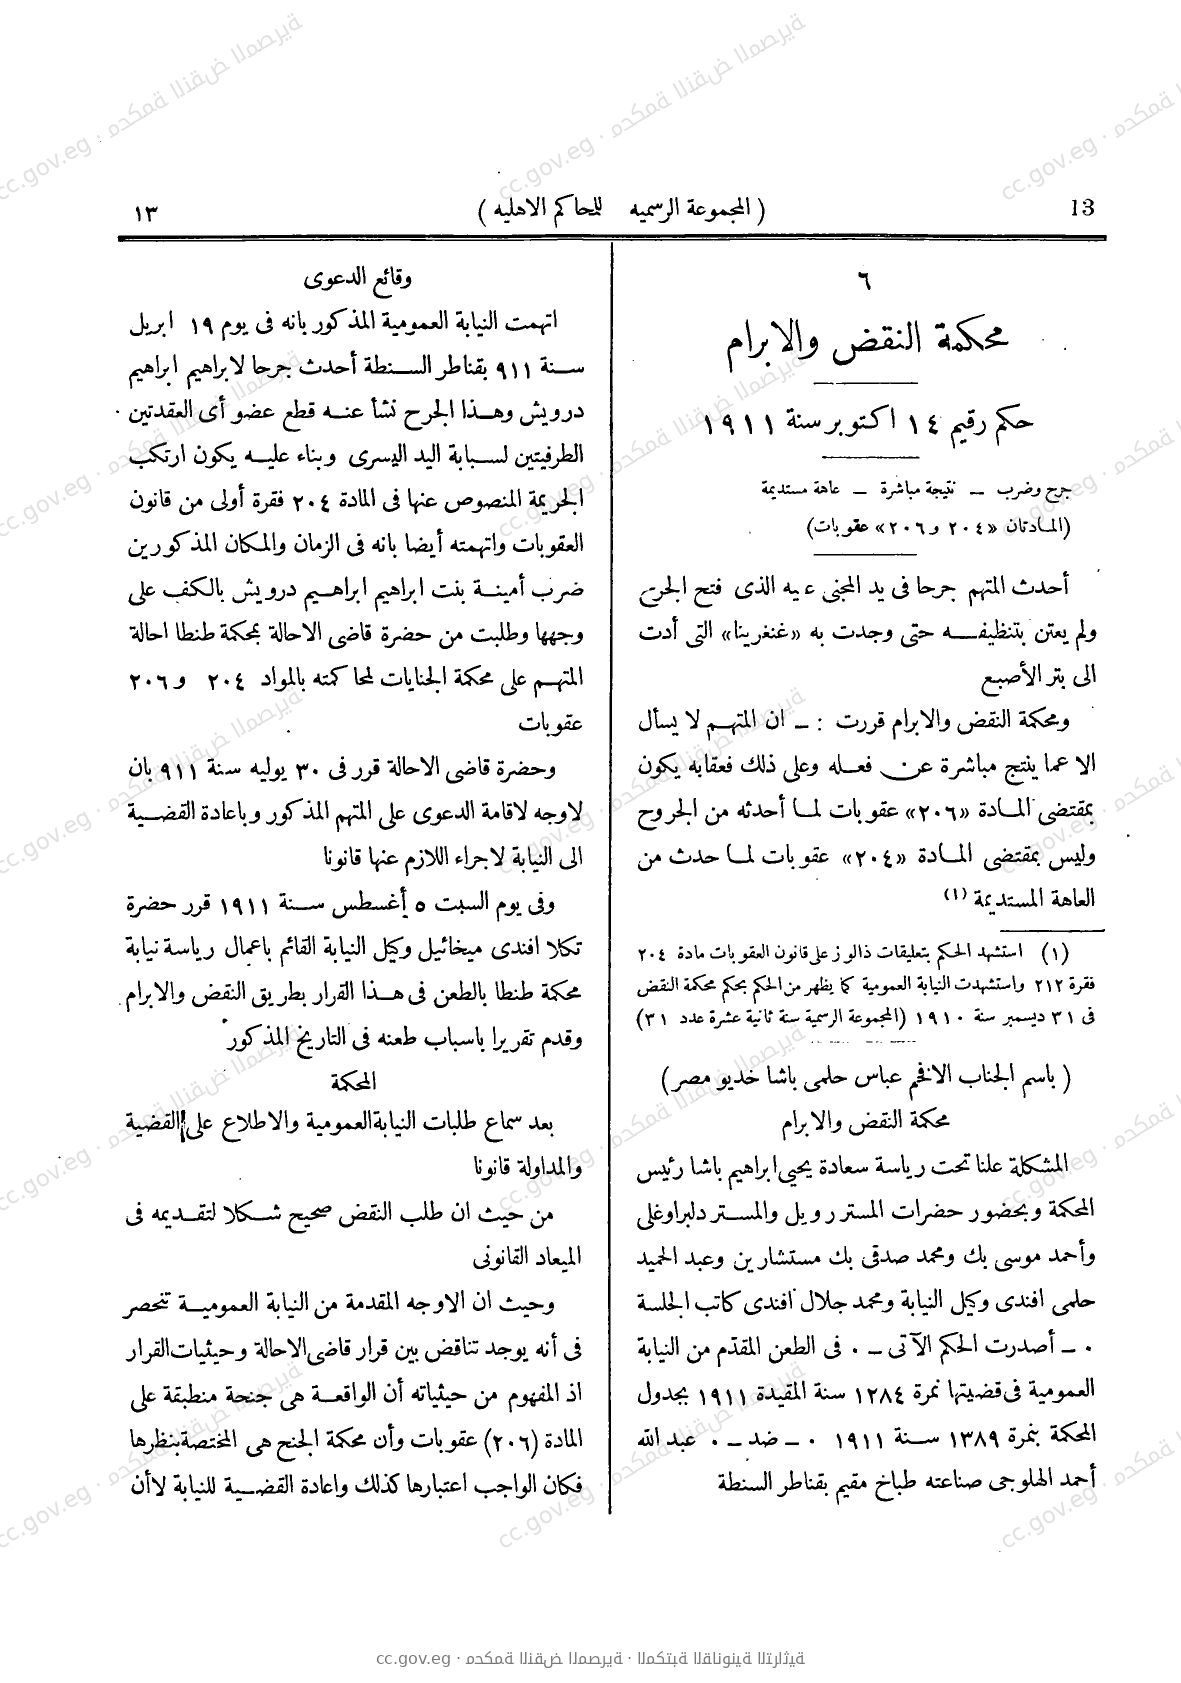 13
( المجموعة الرسميه للمحاكم الاهليه )
١٣
٦
محكمة النقض والابرام
حكم رقيم ١٤ اكتوبر سنة ١٩١١
جرح وضرب ــ نتيجة مباشرة ــ عاهة مستديمة
(المادتان «٢٠٤ و ٢٠٦» عقوبات)
أحدث المتهم جرحا فى يد المجنى عليه الذى فتح الجرح
ولم يعتن بتنظيفه حتى وجدت به «غنغرينا» التى أدت
الى بتر الأصبع
ومحكمة النقض والابرام قررت : ــ ان المتهم لا يسأل
الا عما ينتج مباشرة عن فعله وعلى ذلك فعقابه يكون
بمقتضى المادة «٢٠٦» عقوبات لما أحدثه من الجروح
وليس بمقتضى المادة «٢٠٤» عقوبات لما حدث من
العاهة المستديمة (١)
(١) استشهد الحكم بتعليقات دالوز على قانون العقوبات مادة ٢٠٤
فقرة ٢١٢ واستشهدت النيابة العمومية كما يظهر من الحكم بحكم محكمة النقض
فى ٣١ ديسمبر سنة ١٩١٠ (المجموعة الرسمية سنة ثانية عشرة عدد ٣١)
( باسم الجناب الافخم عباس حلمى باشا خديو مصر )
محكمة النقض والابرام
المشكلة علنا تحت رياسة سعادة يحيى ابراهيم باشا رئيس
المحكمة وبحضور حضرات المستر رويل والمستر دلبراوغلى
وأحمد موسى بك ومحمد صدقى بك مستشارين وعبد الحميد
حلمى افندى وكيل النيابة ومحمد جلال افندى كاتب الجلسة
٠ ــ أصدرت الحكم الآتى ــ ٠ فى الطعن المقدّم من النيابة
العمومية فى قضيتها نمرة ١٢٨٤ سنة المقيدة ١٩١١ بجدول
المحكمة بنمرة ١٣٨٩ سنة ١٩١١ ٠ ــ ضد ــ ٠ عبد الله
أحمد الهلوجى صناعته طباخ مقيم بقناطر السنطة
وقائع الدعوى
اتهمت النيابة العمومية المذكور بانه فى يوم ١٩ ابريل
سنة ٩١١ بقناطر السنطة أحدث جرحا لابراهيم ابراهيم
درويش وهذا الجرح نشأ عنه قطع عضو أى العقدتين
الطرفيتين لسبابة اليد اليسرى وبناء عليه يكون ارتكب
الجريمة المنصوص عنها فى المادة ٢٠٤ فقرة أولى من قانون
العقوبات واتهمته أيضا بانه فى الزمان والمكان المذكورين
ضرب أمينة بنت ابراهيم ابراهيم درويش بالكف على
وجهها وطلبت من حضرة قاضى الاحالة بمحكمة طنطا احالة
المتهم على محكمة الجنايات لمحاكمته بالمواد ٢٠٤ و ٢٠٦
عقوبات
وحضرة قاضى الاحالة قرر فى ٣٠ يوليه سنة ٩١١ بان
لاوجه لاقامة الدعوى على المتهم المذكور وباعادة القضية
الى النيابة لاجراء اللازم عنها قانونا
وفى يوم السبت ٥ أغسطس سنة ١٩١١ قرر حضرة
تكلا افندى ميخائيل وكيل النيابة القائم باعمال رياسة نيابة
محكمة طنطا بالطعن فى هذا القرار بطريق النقض والابرام
وقدم تقريرا باسباب طعنه فى التاريخ المذكور
المحكمة
بعد سماع طلبات النيابة العمومية والاطلاع على القضية
والمداولة قانونا
من حيث ان طلب النقض صحيح شكلا لتقديمه فى
الميعاد القانونى
وحيث ان الاوجه المقدمة من النيابة العمومية تنحصر
فى أنه يوجد تناقض بين قرار قاضى الاحالة وحيثيات القرار
اذ المفهوم من حيثياته أن الواقعة هى جنحة منطبقة على
المادة (٢٠٦) عقوبات وأن محكمة الجنح هى المختصة بنظرها
فكان الواجب اعتبارها كذلك واعادة القضية للنيابة لا أن
cc.gov.eg · محكمة النقض المصرية · المكتبة القانونية التراثية